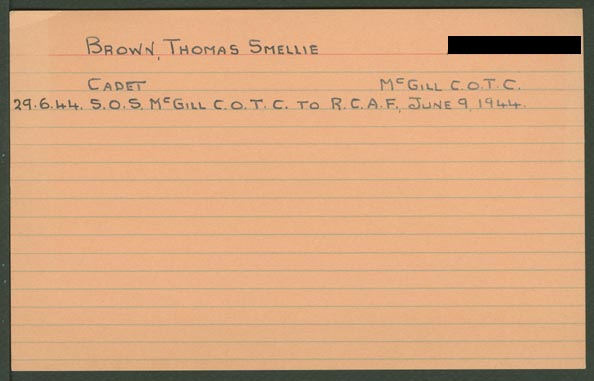 BROWN, THOMAS SMELLIE
CADET McGILL C.O.T.C.
29.6.44. S.O.S. McGILL C.O.T.C. TO R.C.A.F., JUNE 9, 1944.